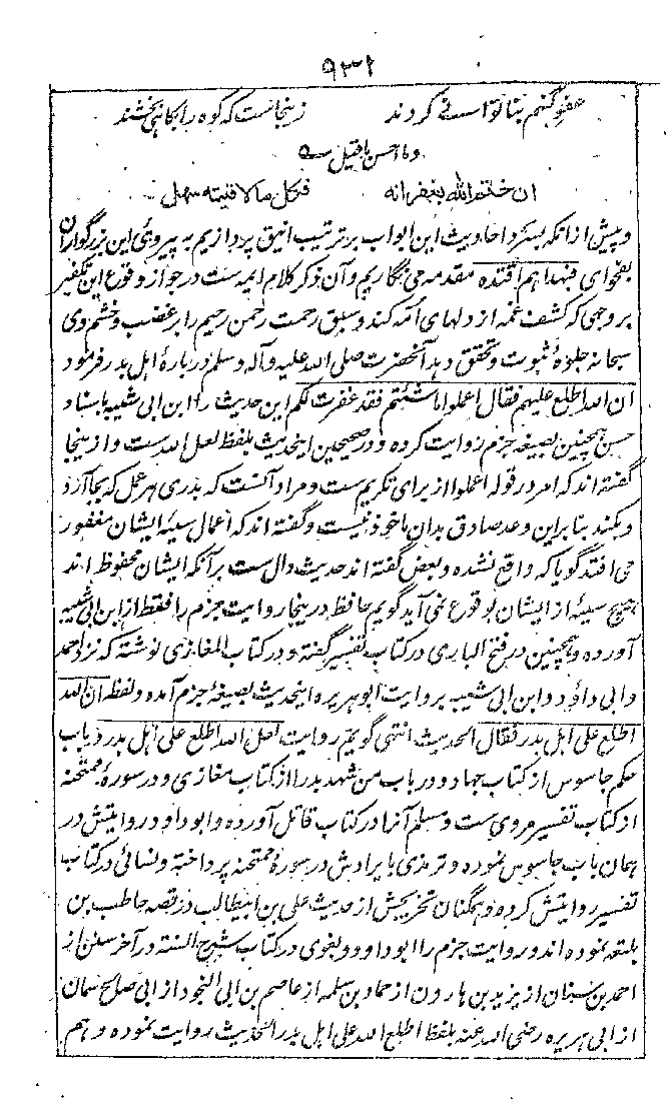 ۹۳۲
عفو گنهم بنا تواسے کردند زینجاست که کوه را بکاهی بخشند
وما احسن ما قیل سه
ان ختم الله بغفرانه فکل ما لاقیته سهل
و پیش ازانکه بسرد احادیث این ابواب بر ترتیب انیق پردازیم به پیروی این بزرگواران
بفحوای فبهداهم اقتده مقدمه می نگاریم وآن ذکر کلام ایمه ست در جواز وقوع این تکفیر
بروجهی که کشف غمه از دلهای امه کند و سبق رحمت رحمن رحیم را بر غضب وخشم وی
سبحانه جلوهٔ ثبوت و تحقق دهد آنحضرت صلی الله علیه وآله وسلم دربارهٔ اهل بدر فرمود
ان الله اطلع علیهم فقال اعملوا ما شئتم فقد غفرت لکم این حدیث را ابن ابی شیبه باسناد
حسن همچنین بصیغه جزم روایت کرده و در صحیحین اینحدیث بلفظ لعل الله ست و ازینجا
گفته اند که امر در قوله اعملوا از برای تکریم ست و مراد آنست که بدری هر عمل که بجا آرد
و بکند بنا بر این وعد صادق بدان ماخوذ نیست و گفته اند که اعمال سیئه ایشان مغفور
می افتد گویا که واقع نشده و بعض گفته اند حدیث دال ست بر آنکه ایشان محفوظ اند
هیچ سیئه از ایشان بوقوع نمی آید گویم حافظ درینجا روایت جزم را فقط از ابن ابی شیبه
آورده و همچنین در فتح الباری در کتاب تفسیر گفته و در کتاب المغازی نوشته که نزد احمد
وابی داؤد وابن ابی شیبه بروایت ابو هریره اینحدیث بصیغهٔ جزم آمده ولفظه ان الله
اطلع علی اهل بدر فقال الحدیث انتهی گویم روایت لعل الله اطلع علی اهل بدر در باب
حکم جاسوس از کتاب جهاد و در باب من شهد بدرا از کتاب مغازی و در سورهٔ ممتحنه
از کتاب تفسیر مروی ست و مسلم آنرا در کتاب آورده وابو داود روایتش در
همان باب جاسوس نموده و ترمذی بایرادش در سورهٔ ممتحنه پرداخته ونسائی در کتاب
تفسیر روایتش کرده و همگنان تخریجش از حدیث علی بن ابیطالب در قصه حاطب بن
بلتعه نموده اند و روایت جزم را ابو داود و بغوی در کتاب شرح السنة در آخر سنن از
احمد بن سنان از یزید بن هارون از حماد بن سلمه از عاصم بن ابی النجود از ابی صالح سمان
از ابی هریره رضی الله عنه بلفظ اطلع الله علی اهل بدر الحدیث روایت نموده و هم